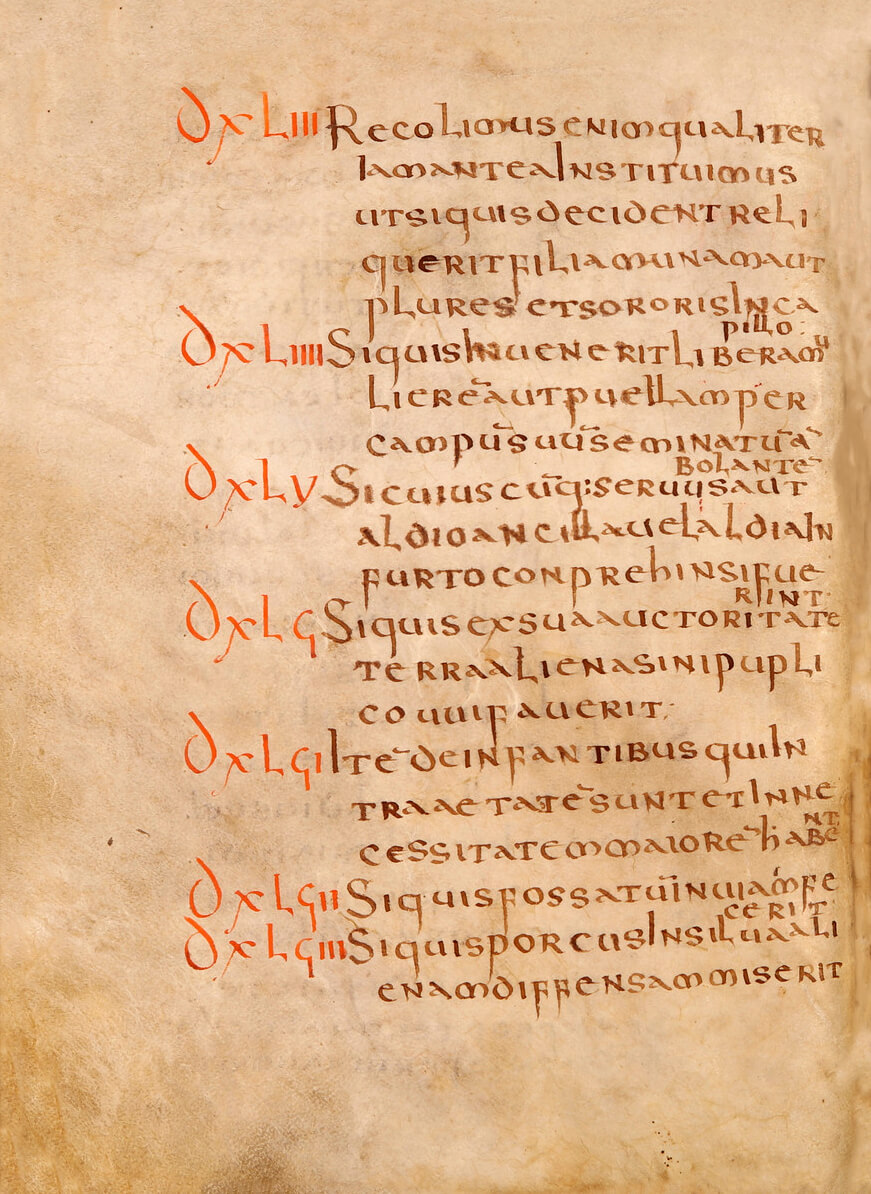 DXLIII Recolimus enim qualiter
iam antea instituimus
ut si quis decident reli
querit filiam unam aut
plures et sororis in ca
pillo:
DXLIIII Si quis inuenerit liberam mu
lierē aut puellam per
campū suū seminatū ā
bolantē
DXLV Si cuius cūq; seruus aut
aldio ancilla uel aldia in
furto conprehinsi fue
rint·
DXLϛ Si quis ex sua auctoritate
terra aliena sini pupli
co uuifauerit;
DXLϛI Itē de infantibus qui in
tra aetatē sunt et in ne
cessitatem maiorē habe
nt
DXLϛII Si quis fossatū in uiam fe
cerit·
DXLϛIII Si quis porcus in silua ali
enam diffensam miserit